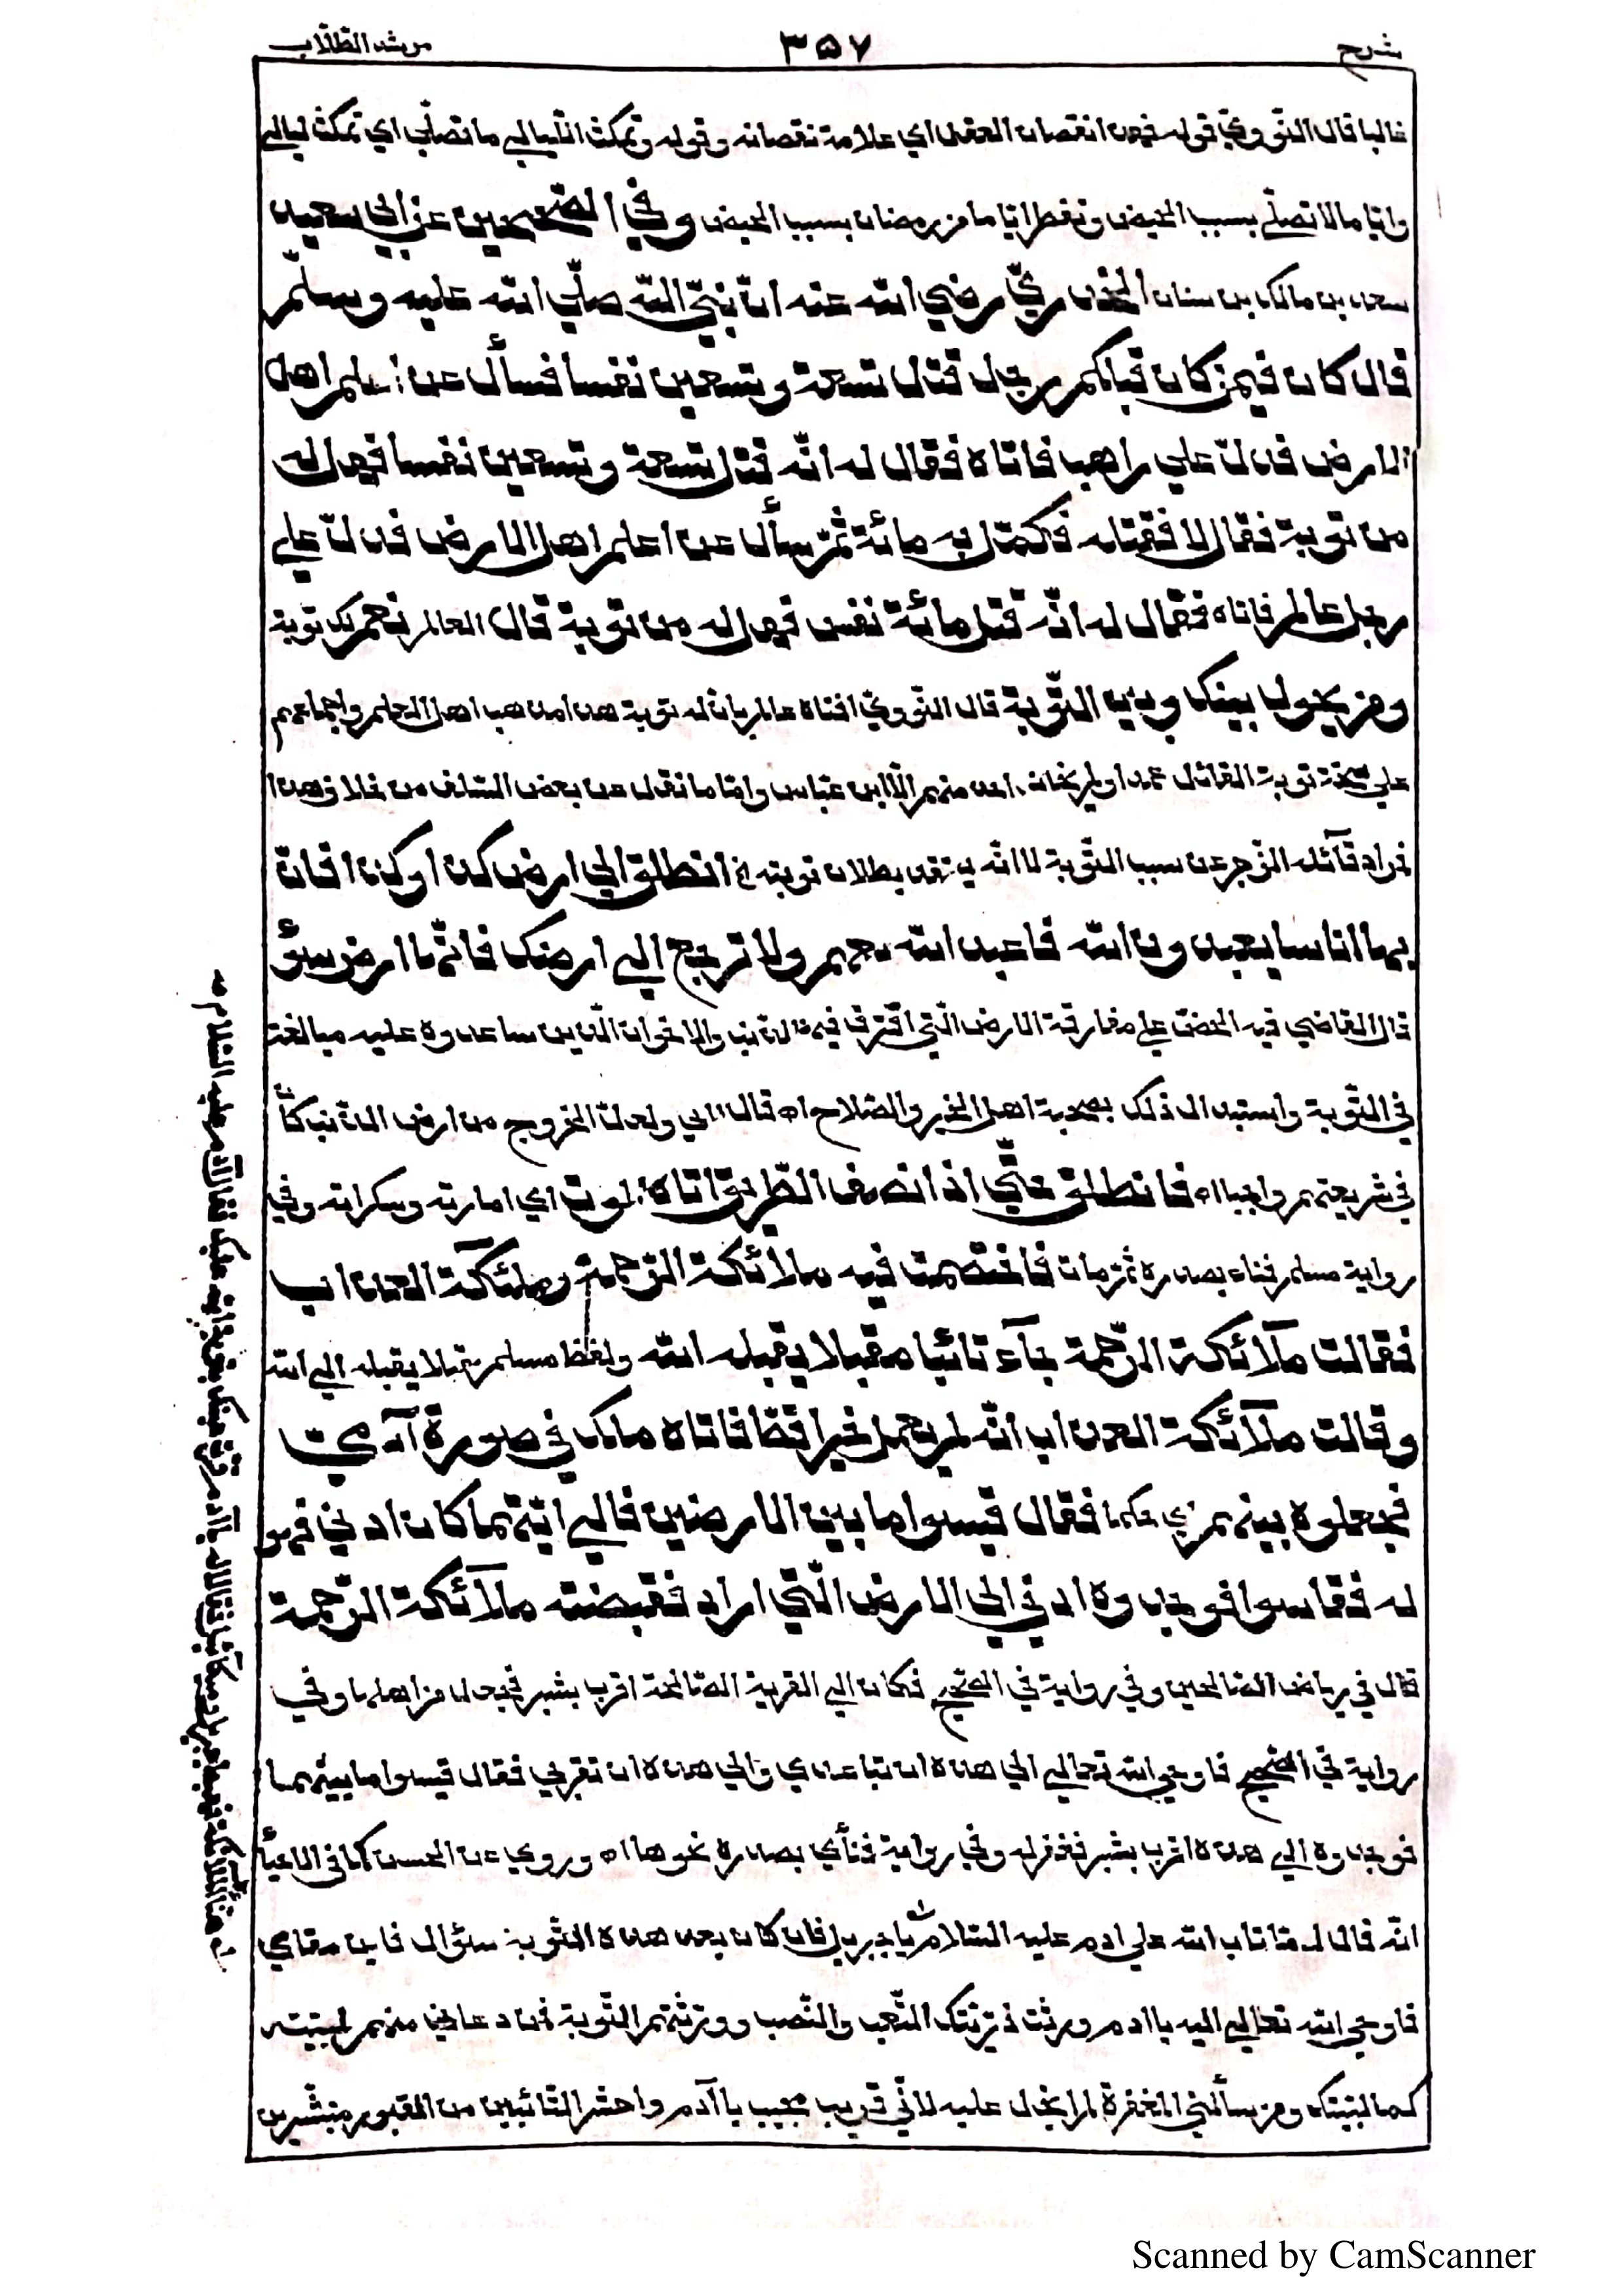 شرح ٣٥٧ مرشد الطلّاب
غالبا قال النّوويّ قوله فهذا نقصان العقل اي علامة نقصانه وقوله وتمكث اللّيالي ما تصلّي اي تمكث ليالي
وايّاما لا تصلّي بسبب الحيض وتفطر ايّاما من رمضان بسبب الحيض وفي الصّحيحين عن ابي سعيد
سعد بن مالك بن سنان الخدريّ رضي الله عنه انّ نبيّ الله صلّي الله عليه وسلّم
قال كان فيمن كان قبلكم رجل قتل تسعة وتسعين نفسا فسأل عن اعلم اهل
الارض فدلّ علي راهب فاتاه فقال له انّه قتل تسعة وتسعين نفسا فهل له
من توبة فقال لا فقتله فكمّل به مائة ثمّ سأل عن اعلم اهل الارض فدلّ علي
رجل عالم فاتاه فقال له انّه قتل مائة نفس فهل له من توبة قال العالم نعم لك توبة
ومن يحول بينك وبين التّوبة قال النّوويّ افتاه عالم بانّ له توبة هذا مذهب اهل العلم واجماعهم
علي صحّة توبة القاتل عمدا ولم يخالف احد منهم الّا ابن عبّاس وامّا ما نقل عن بعض السّلف من خلاف هذا
فمراد قائله الزّجر عن سبب التّوبة لا انّه يعتقد بطلان توبته اﻫ انطلق الي ارض كذا وكذا فانّ
بها اناسا يعبدون الله فاعبد الله معهم ولا ترجع الي ارضك فانّها ارض سوء
قال القاضي فيه الحضّ علي مفارقة الارض الّتي اقترف فيها الذّنب والاخوان الّذين ساعدوه عليه مبالغة
في التّوبة واستبدال ذلك بصحبة اهل الخير والصّلاح اه قال ابي ولعلّ الخروج من ارض الذّنب كان
في شريعتهم واجبا اه فانطلق حتّي اذا نصف الطّريق اتاه الموت اي امارته وسكراته وفي
رواية مسلم فناء بصدره ثمّ مات فاختصمت فيه ملائكة الرّحمة وملئكة العذاب
فقالت ملآئكة الرّحمة جآء تائبا مقبلا يقبله الله ولفظ مسلم مقبلا بقلبه الي الله
وقالت ملآئكة العذاب انّه لم يعمل خيرا قطّ فاتاه ملك في صورة آدميّ
فجعلوه بينهم اي حكما فقال قيسوا ما بين الارضين فالي ايّتهما كان ادني فهو
له فقاسوا فوجدوه ادني الي الارض الّتي اراد فقبضته ملآئكة الرّحمة
قال في رياض الصّالحين وفي رواية في الصّحيح فكان الي القرية الصّالحة اقرب بشبر فجعل من اهلها وفي
رواية في الصّحيح فاوحي الله تعالي الي هذه ان تباعدي والي هذه ان تقربي فقال قيسوا ما بينهما
فوجدوه الي هذه اقرب بشبر فغفر له وفي رواية فنأي بصدره نحوها اه وروي عن الحسن كما في الاحيآ
انّه قال لمّا تاب الله علي ادم عليه السّلام يا جبريل فان كان بعد هذه التّوبة سؤال فاين مقامي
فاوحي الله تعالي اليه يا ادم ورثت ذرّيّتك التّعب والنّصب وورّثتهم التّوبة فمن دعاني منهم لبّيته
كما لبّيتك ومن سألني المغفرة لم ابخل عليه لانّي قريب مجيب يا آدم واحشر التّائبين من القبور مبشّرين